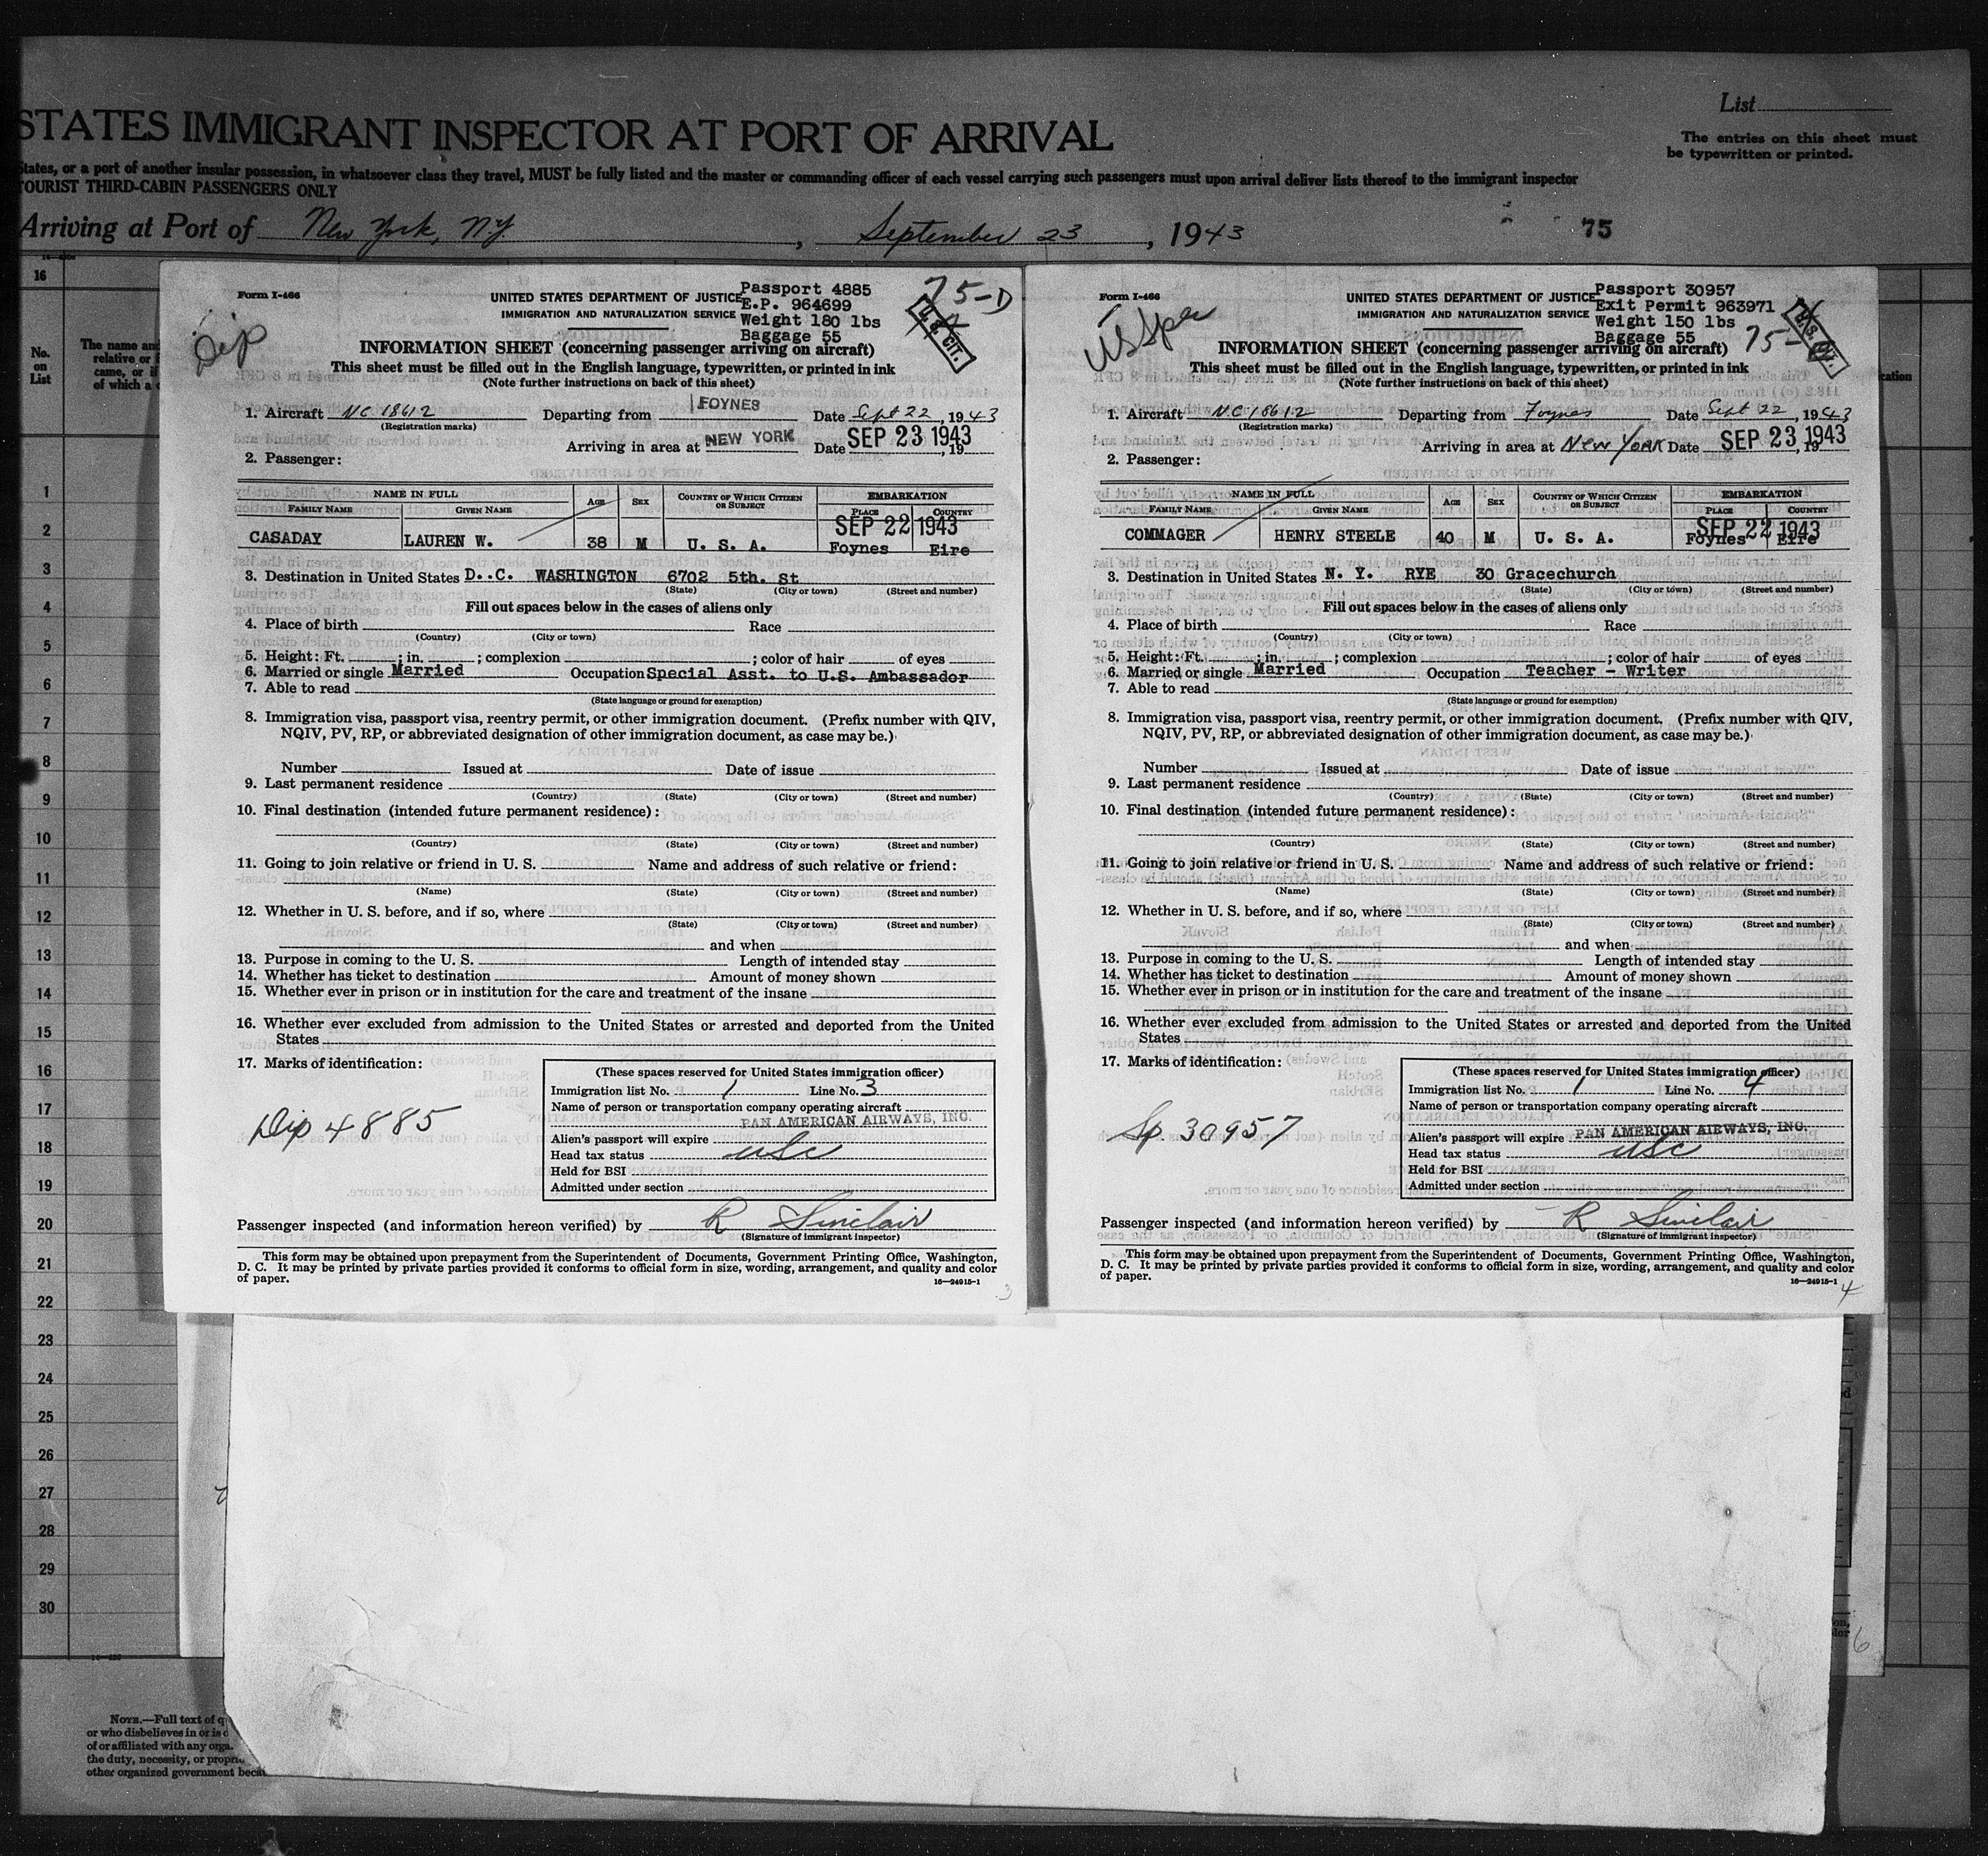 List
STATES IMMIGRANT INSPECTOR AT PORT OF ARRIVAL
The entries on this sheet must
be typewritten or printed.
States, or a port of another insular possession, in whatsoever class they travel, MUST be fully listed and the master or commanding officer of each vessel carrying such passengers must upon arrival deliver lists thereof to the immigrant inspector
TOURIST THIRD-CABIN PASSENGERS ONLY
Arriving at Port of New York, N.Y. , September 23 , 1943
75
16
No.
on
List
The name and
relative or f
came, or if
of which a c
1
2
3
4
5
6
7
8
9
10
11
12
13
14
15
16
17
18
19
20
21
22
23
24
25
26
27
28
29
30
Dip
Form I-466
UNITED STATES DEPARTMENT OF JUSTICE
IMMIGRATION AND NATURALIZATION SERVICE
Passport 4885
E.P. 964699
Weight 180 lbs
Baggage 55
75-D
U.S. CIT.
INFORMATION SHEET (concerning passenger arriving on aircraft)
This sheet must be filled out in the English language, typewritten, or printed in ink
(Note further instructions on back of this sheet)
1. Aircraft NC 18612 Departing from FOYNES Date Sept 22, 1943
(Registration marks)
Arriving in area at NEW YORK Date SEP 23 1943, 19
2. Passenger:
NAME IN FULL AGE SEX COUNTRY OF WHICH CITIZEN OR SUBJECT EMBARKATION
FAMILY NAME GIVEN NAME PLACE COUNTRY
SEP 22 1943
CASADAY LAUREN W. 38 M U. S. A. Foynes Eire
3. Destination in United States D..C. WASHINGTON 6702 5th. St
(State) (City or town) (Street and number)
Fill out spaces below in the cases of aliens only
4. Place of birth Race
(Country) (City or town)
5. Height: Ft. ; in. ; complexion ; color of hair of eyes
6. Married or single Married Occupation Special Asst. to U.S. Ambassador
7. Able to read
(State language or ground for exemption)
8. Immigration visa, passport visa, reentry permit, or other immigration document. (Prefix number with QIV,
NQIV, PV, RP, or abbreviated designation of other immigration document, as case may be.)
Number Issued at Date of issue
9. Last permanent residence
(Country) (State) (City or town) (Street and number)
10. Final destination (intended future permanent residence):
(Country) (State) (City or town) (Street and number)
11. Going to join relative or friend in U. S. Name and address of such relative or friend:
(Name) (State) (City or town) (Street and number)
12. Whether in U. S. before, and if so, where
(State) (City or town) (Street and number)
and when
13. Purpose in coming to the U. S. Length of intended stay
14. Whether has ticket to destination Amount of money shown
15. Whether ever in prison or in institution for the care and treatment of the insane
16. Whether ever excluded from admission to the United States or arrested and deported from the United
States
17. Marks of identification:
Dip 4885
(These spaces reserved for United States immigration officer)
Immigration list No. 1 Line No. 3
Name of person or transportation company operating aircraft
PAN AMERICAN AIRWAYS, INC.
Alien's passport will expire
Head tax status USC
Held for BSI
Admitted under section
Passenger inspected (and information hereon verified) by R Sinclair
(Signature of immigrant inspector)
This form may be obtained upon prepayment from the Superintendent of Documents, Government Printing Office, Washington,
D. C. It may be printed by private parties provided it conforms to official form in size, wording, arrangement, and quality and color
of paper. 16—24915-1
3
Form I-466
UNITED STATES DEPARTMENT OF JUSTICE
IMMIGRATION AND NATURALIZATION SERVICE
Passport 30957
Exit Permit 963971
Weight 150 lbs
Baggage 55
75-
INFORMATION SHEET (concerning passenger arriving on aircraft)
This sheet must be filled out in the English language, typewritten, or printed in ink
(Note further instructions on back of this sheet)
1. Aircraft NC 18612 Departing from Foynes Date Sept 22, 1943
(Registration marks)
Arriving in area at New York Date SEP 23 1943, 19
2. Passenger:
NAME IN FULL AGE SEX COUNTRY OF WHICH CITIZEN OR SUBJECT EMBARKATION
FAMILY NAME GIVEN NAME PLACE COUNTRY
SEP 22 1943
COMMAGER HENRY STEELE 40 M U. S. A. Foynes Eire
3. Destination in United States N. Y. RYE 30 Gracechurch
(State) (City or town) (Street and number)
Fill out spaces below in the cases of aliens only
4. Place of birth Race
(Country) (City or town)
5. Height: Ft. ; in. ; complexion ; color of hair of eyes
6. Married or single Married Occupation Teacher - Writer
7. Able to read
(State language or ground for exemption)
8. Immigration visa, passport visa, reentry permit, or other immigration document. (Prefix number with QIV,
NQIV, PV, RP, or abbreviated designation of other immigration document, as case may be.)
Number Issued at Date of issue
9. Last permanent residence
(Country) (State) (City or town) (Street and number)
10. Final destination (intended future permanent residence):
(Country) (State) (City or town) (Street and number)
11. Going to join relative or friend in U. S. Name and address of such relative or friend:
(Name) (State) (City or town) (Street and number)
12. Whether in U. S. before, and if so, where
(State) (City or town) (Street and number)
and when
13. Purpose in coming to the U. S. Length of intended stay
14. Whether has ticket to destination Amount of money shown
15. Whether ever in prison or in institution for the care and treatment of the insane
16. Whether ever excluded from admission to the United States or arrested and deported from the United
States
17. Marks of identification:
Sp. 30957
(These spaces reserved for United States immigration officer)
Immigration list No. 1 Line No. 4
Name of person or transportation company operating aircraft
PAN AMERICAN AIRWAYS, INC.
Alien's passport will expire
Head tax status USC
Held for BSI
Admitted under section
Passenger inspected (and information hereon verified) by R Sinclair
(Signature of immigrant inspector)
This form may be obtained upon prepayment from the Superintendent of Documents, Government Printing Office, Washington,
D. C. It may be printed by private parties provided it conforms to official form in size, wording, arrangement, and quality and color
of paper. 16—24915-1
4
6
NOTE.—Full text of q
or who disbelieves in or is
of or affiliated with any orga
the duty, necessity, or propri
other organized government beca